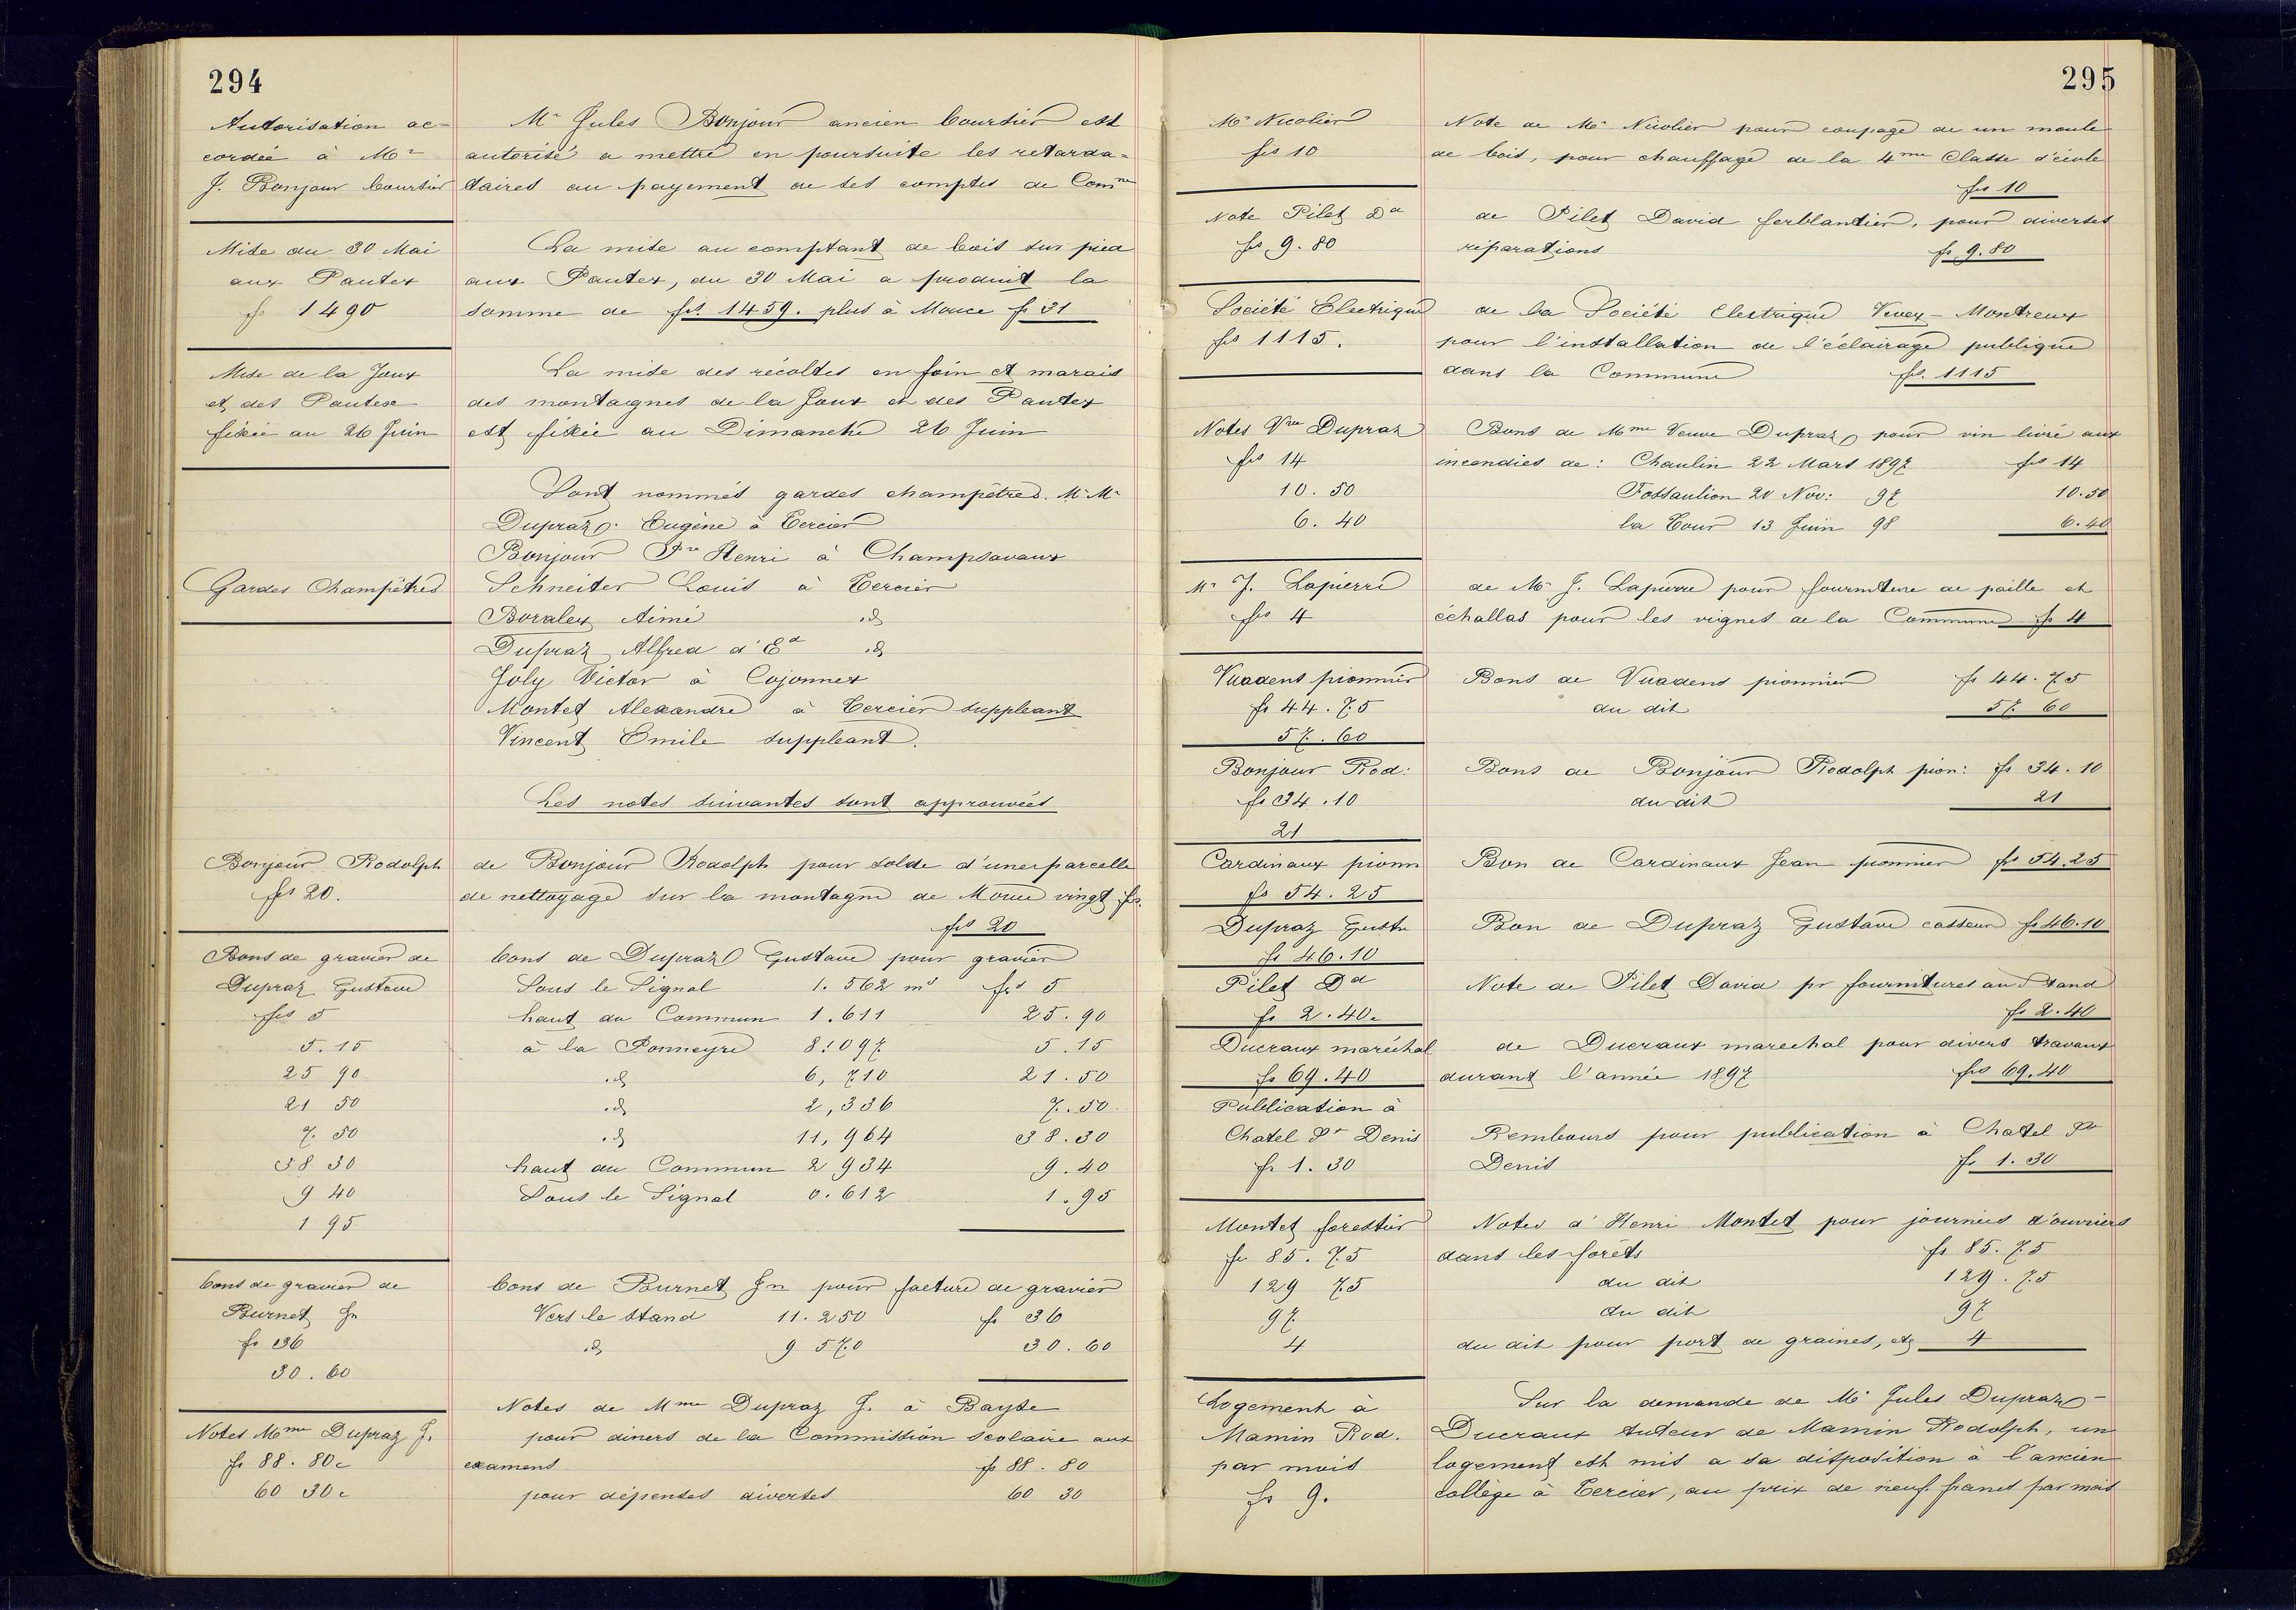 294
Autorisation ac-
cordée à Mr
J. Bonjour boursier
Mr Jules Bonjour ancien boursier est
autorisé a mettre en poursuite les retarda-
taires au payement de ses comptes de Comne
Mise du 30 Mai
aux Pautex
fs 1490
La mise au comptant de bois sur pied
aux Pautex, du 30 Mai a produit la
somme de frs. 1459. plus à Mouce fs 31
Mise de la Joux
et des Pautex
fixée au 26 Juin
La mise des récoltes en foin et marais
des montagnes de la Joux et des Pautex
est fixée au Dimanche 26 Juin
Gardes Champêtres
Sont nommés gardes champêtres. M.M.
Dupraz Eugène à Tercier
Bonjour Fre Henri à Champsavaux
Schneiter Louis à Tercier
Boraley Aimé id
Dupraz Alfred d'Ed id
Joly Victor à Cojonnex
Montet Alexandre à Tercier suppleant
Vincent Emile suppleant.
Les notes suivantes sont approuvées
Bonjour Rodolph
frs 20.
de Bonjour Rodolph pour solde d'une parcelle
de nettoyage sur la montagne de Mouce vingt fr.
frs 20
Bons de gravier de
Dupraz Gustave
frs 5
5.15
25 90
21 50
7. 50
38 30
9 40
1 95
bons de Dupraz Gustave pour gravier
Sous le Signal 1. 562 m3 frs 5
haut du Commun 1. 611 25. 90
à la Ponneyre 8! 097 5. 15
id 6, 710 21. 50
id 2, 336 7. 50
id 11, 964 38. 30
haut du Commun 2 934 9. 40
Sous le Signal 0. 612 1. 95
bons de gravier de
Burnet Jn
fs 36
30. 60
bons de Burnet Jn pour facture de gravier
Vers le stand 11. 250 fs 36
id 9 570 30. 60
Notes Mme Dupraz J.
fs 88. 80c
60 30c
Notes de Mme Dupraz J. à Bayse
pour diners de la Commission scolaire aux
examens fs 88. 80
pour dépenses diverses 60 30
295
Mr Nicolier
frs 10
Note de Mr Nicolier pour coupage de un moule
de bois, pour chauffage de la 4me Classe d'école
frs 10
Note Pilet Dd
frs 9. 80
de Pilet David ferblantier, pour diverses
réparations fs 9. 80
Société Electrique
frs 1115.
de la Société Electrique Vevey-Montreux
pour l'installation de l'éclairage publique
dans la Commune frs. 1115
Notes Vve Dupraz
frs 14
10. 50
6. 40
Bons de Mme Veuve Dupraz pour vin livré aux
incendies de: Chaulin 22 Mars 1897 frs 14
Fossaulion 20 Nov: 97 10.50
la Tour 13 Juin 98 6.40
Mr J. Lapierre
frs 4
de Mr J. Lapierre pour fourniture de paille et
échallas pour les vignes de la Commune fs 4
Vuadens pionnier
fs 44. 75
57. 60
Bons de Vuadens pionnier fs 44. 75
du dit 57. 60
Bonjour Rod:
fs 34. 10
21
Bons de Bonjour Rodolph pion: fs 34. 10
du dit 21
Cardinaux pionn
fs 54. 25
Bon de Cardinaux Jean pionnier frs 54.25
Dupraz Gustve
fs 46.10
Bon de Dupraz Gustave casseur fs 46.10
Pilet Dd
fs 2. 40c
Note de Pilet David pr fournitures au Stand
fs 2. 40
Ducraux maréchal
fs 69. 40
de Ducraux marechal pour divers travaux
durant l'année 1897 frs 69. 40
Publication à
Chatel St Denis
fr 1. 30
Rembours pour publication à Chatel St
Denis fs 1. 30
Montet forestier
fr 85. 75
129 75
97
4
Notes d'Henri Montet pour journées d'ouvriers
dans les forêts fs 85. 75
du dit 129. 75
du dit 97
du dit pour port de graines, etc 4
Logement à
Mamin Rod.
par mois
frs 9.
Sur la demande de Mr Jules Dupraz-
Ducraux tuteur de Mamin Rodolph, un
logement est mis a sa disposition à l'ancien
collège à Tercier, au prix de neuf francs par mois